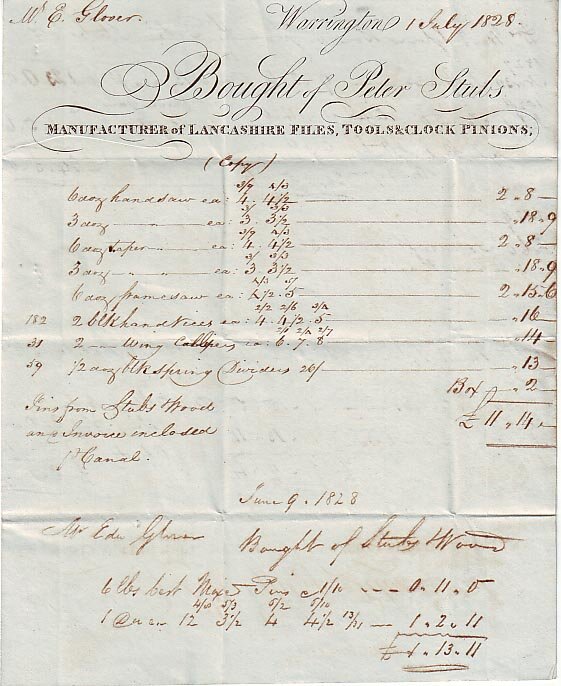 Mr. E. Glover. Warrington 1 July 1828.
Bought of Peter Stubs
MANUFACTURER of LANCASHIRE FILES, TOOLS & CLOCK PINIONS;
(Copy)
3/9 4/3
6 doz handsaw ea: 4 . 4 1/2 2 " 8 -
3/ 3/3
3 doz — " — ea: 3 . 3 1/2 " 18 " 9
3/9 4/3
6 doz taper — ea: 4 . 4 1/2 2 " 8 -
3/ 3/3
3 doz — " — ea: 3 . 3 1/2 " 18 " 9
4/3 5/
6 doz framesaw ea: 4 1/2 . 5 2 " 15 " 6
2/2 2/6 3/4
182 2 blk hand Vices ea: 4 . 4 1/2 . 5 " 16 -
2/1 2/4 2/7
31 2 — Wing Callipers ea: 6 . 7 . 8 " 14 -
59 1/2 doz blk spring Dividers 26/ " 13 -
Box " 2 -
£ 11 " 14 " -
Pins from Stubs Wood
and Invoice inclosed
Pr Canal.
June 9. 1828
Mr Edw Glover Bought of Stubs & Wood
6 lbs best Mixed Pins 1/10 0 . 11 . 0
4/10 5/3 5/2 5/10
12 3 1/2 4 4 1/2 1 . 2 . 11
£ 1 . 13 . 11